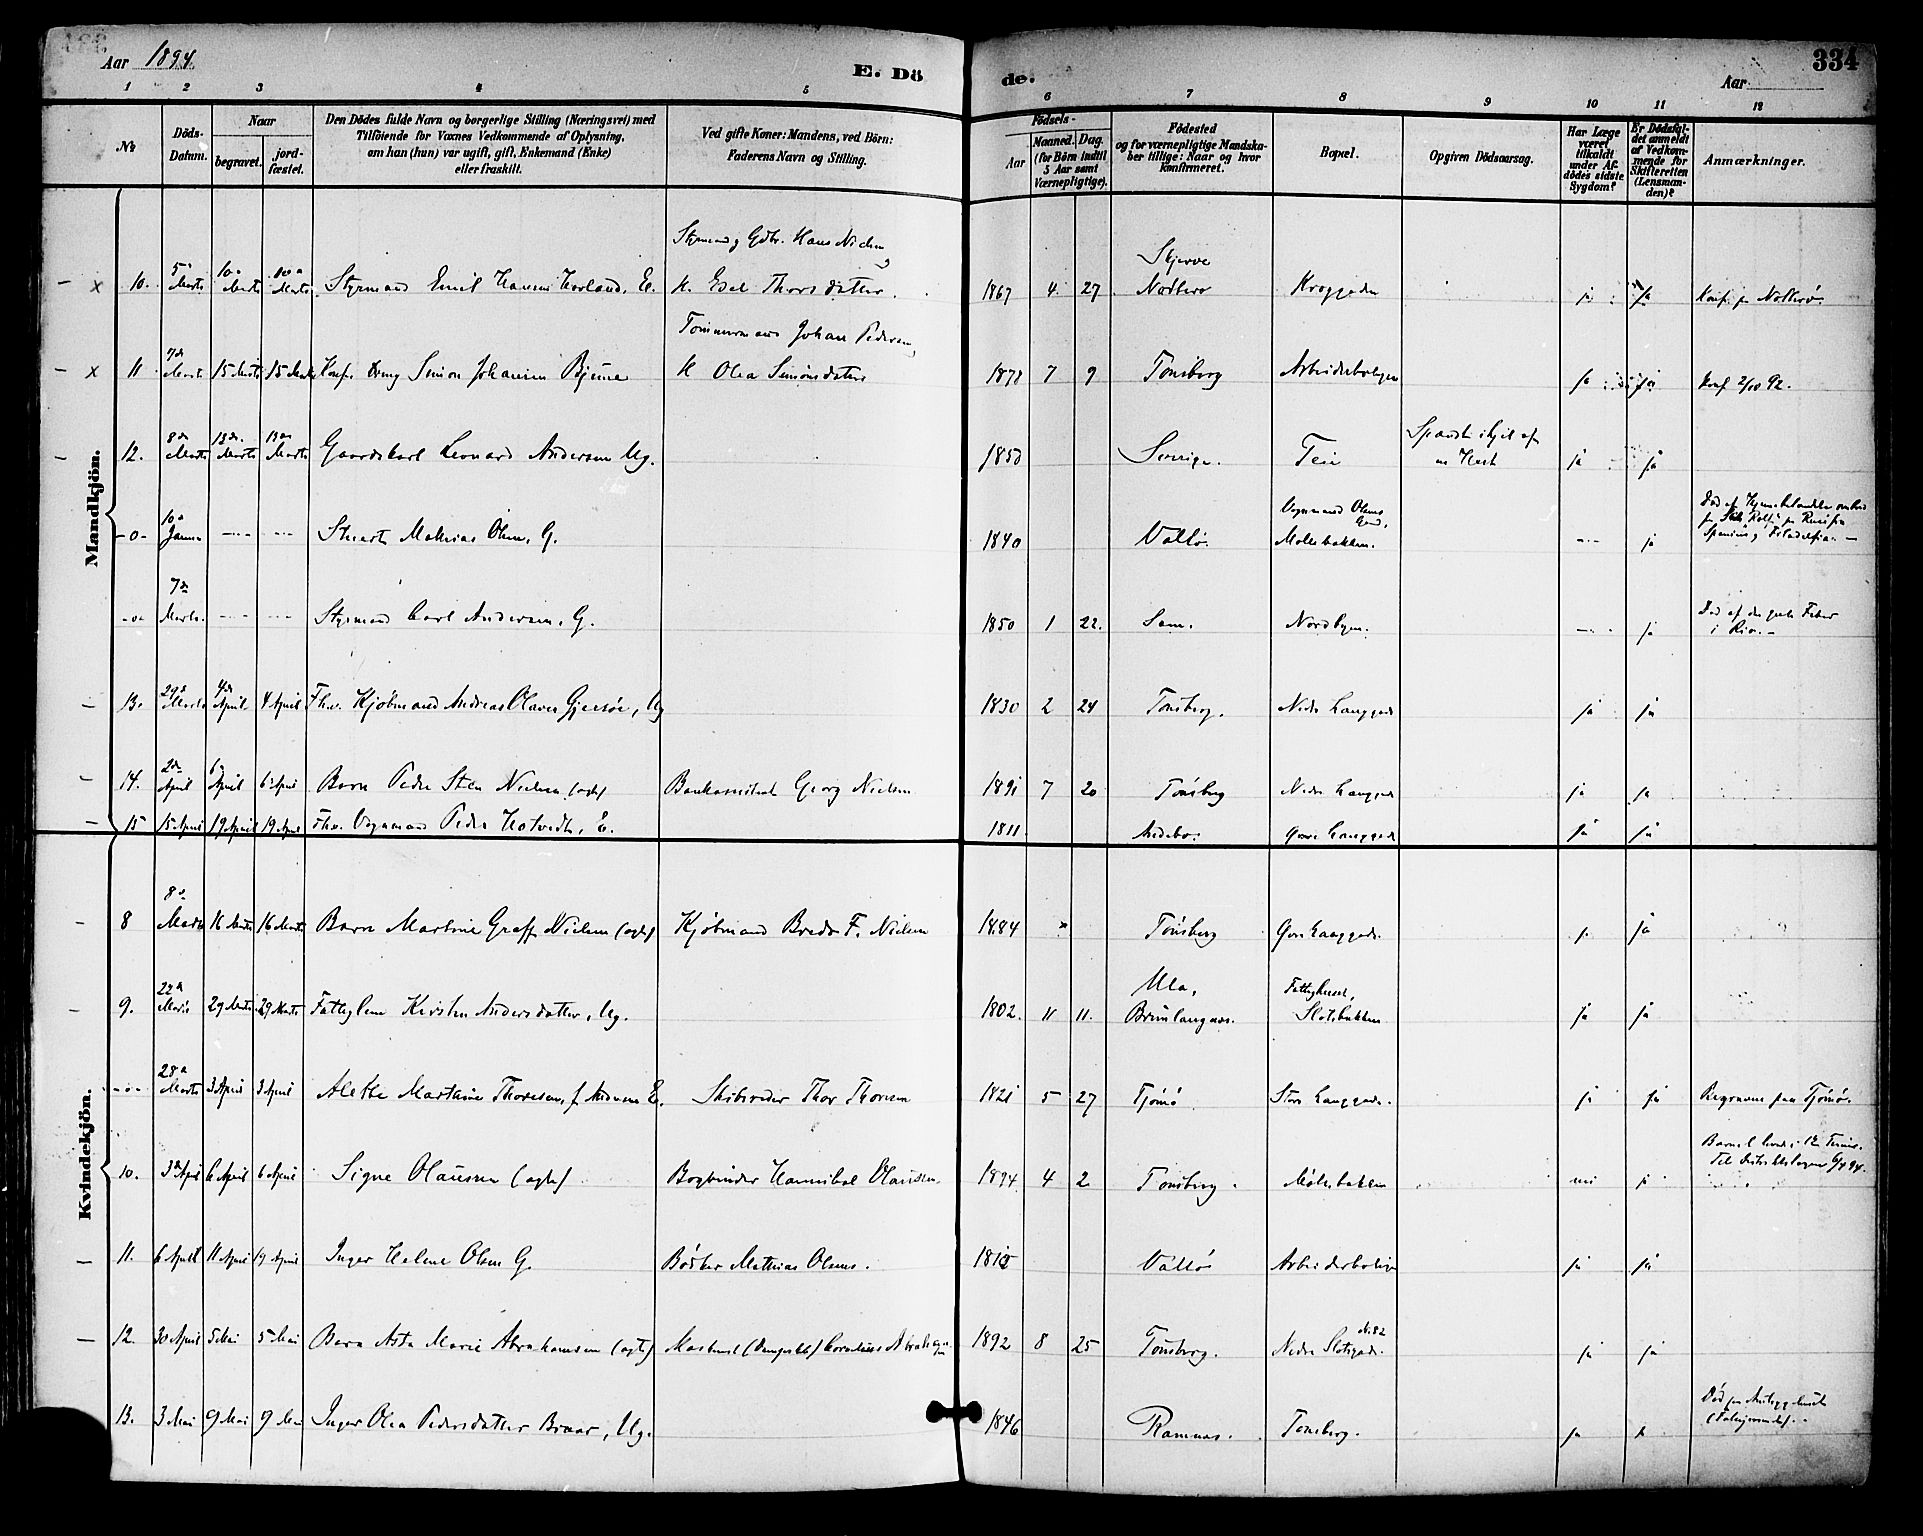 Aar 1894.
E. Dö
de.
Aar
334
1 2 3 4 5 6 7 8 9 10 11 12
No
Döds-Datum.
Naar
begravet.
jordfæstet.
Den Dödes fulde Navn og borgerlige Stilling (Næringsvei) med
Tilföiende for Voxnes Vedkommende af Oplysning,
om han (hun) var ugift, gift, Enkemand (Enke)
eller fraskilt.
Ved gifte Koner: Mandens, ved Börn:
Faderens Navn og Stilling.
Födsels-
Aar
Maaned. Dag.
(for Börn indtil
5 Aar samt
Værnepligtige).
Födested
og for værnepligtige Mandskaber tillige: Naar og hvor
konfirmeret.
Bopæl.
Opgiven Dödsaarsag.
Har Læge været tilkaldt under Afdödes sidste Sygdom?
Er Dödsfaldet anmeldt af Vedkommende for Skifteretten (Lensmanden)?
Anmærkninger.
Mandkjön.
10. 5 Marts 10 Marts 10 Marts Styrmand Emil Hansen E. Styrmand Hans Nielsen H. Thorsdatter 1867 4 27 Nøtterø ja Konf. p. Nøtterø
11 7de Marts 15 Marts 15 Marts Konf. Dreng Simon Johansen Bjerne Tømmermand Johan Pedersen H Olea Simonsdatter 1878 7 9 Tønsberg Arbeiderboligen ja ja Konf 2/10 92.
12. 8de Marts 13de Marts 13de Marts Gaardskarl Leonard Andersen Ug. 1850 Sverige. Teie Spændt ihjel af en Hest ja ja
-o- 10 Januar Stuert Mathias Olsen, G. 1840 Vallø. Møllebakken. ja
-o- 7de Marts. Styrmand Carl Andersen, G. 1850 1 22. Sem. Nordbyen. ja Død af den gule Feber i Rio.
13. 29 Marts 4de April 4 April Fhv. Kjøbmand Andreas Olaves Gjersøe, Ug 1830 2 24 Tønsberg. Nedre Langgade ja ja
14. 2de April 6 April 6 April Barn Peder Sten Nielsen (ægte) Georg Nielsen 1891 7 20 Tønsberg Nedre Langgade ja ja
15 15 April 19 April 19 April Fhv. Vognmand Peder Hotvedt, E. 1811. Andebo. Øvre Langgade ja ja
Kvindekjön.
8 8 Marts 16 Marts 16 Marts Barn Martine Graff Nielsen (ægte) Kjøbmand Breder F. Nielsen 1884 Tønsberg Øvre Langgade. ja
9. 22 Marts 29 Marts 29 Marts Fattiglem Kirsten Andersdatter, Ug. 1802. 11 11. Ula, Brunlangnæs. Fattighuset, Slotsbakken ja ja
-o- 28 Marts 3 April 3 April Alethe Marthine Thoresen, f. Andersen E. Skibsreder Thor Thoresen 1821 5 27 Tjømø Store Langgade. ja ja Begraven paa Tjømø.
10. 3 April 6 April 6 April Signe Olausen (ægte) Bogbinder Hannibal Olausen. 1894 4 2 Tønsberg. Møllebakken nei ja
11. 6 April 11 April 19 April Inger Helene Olsen G. Bødker Mathias Olsens. Vallø Arbeiderbolig ja ja
12. 30 April 5 Mai 5 Mai Barn Asta Marie Abrahamsen (ægte) Maskinist (Dampskib) Cornelius Abrahamsen 1892 8 25 Tønsberg. Nedre Slotsgade. No 82 ja ja
13. 3 Mai 9 Mai 9 Mai Inger Olea Pedersdatter Braar, Ug. 1846 Ramnæs. Tønsberg. ja